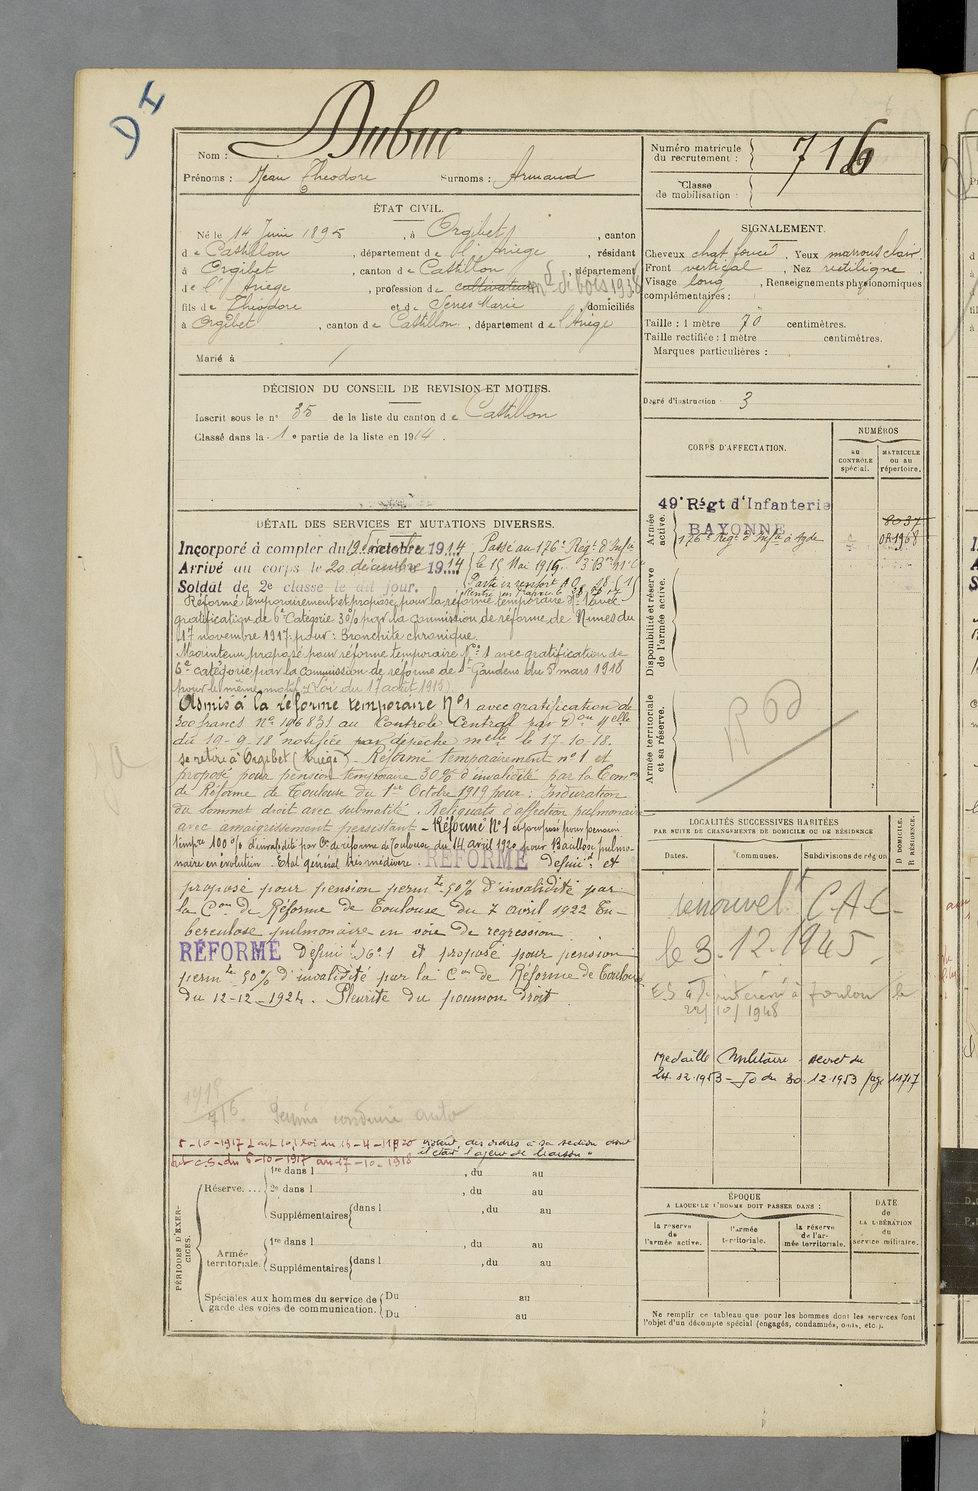 Dubuc
Nom :
Prénoms : Jean Theodore Surnoms : Armand
Numéro matricule du recrutement : 716
Classe de mobilisation
ÉTAT CIVIL.
Né le 14 Juin 1895, à Orgibet, canton
de Castillon, département de l'Ariège, résidant
à Orgibet, canton de Castillon, département
de l'Ariège, profession de cultivateur md de bois 1938
fils de Théodore et de Serres Marie, domiciliés
à Orgibet, canton de Castillon, département de l'Ariège
Marié à /
SIGNALEMENT.
Cheveux chat foncé. Yeux marrons clair.
Front vertical, Nez rectiligne.
Visage long, Renseignements physionomiques
complémentaires :
Taille : 1 mètre 70 centimètres.
Taille rectifiée : 1 mètre centimètres.
Marques particulières :
Degré d'instruction : 3
DÉCISION DU CONSEIL DE REVISION ET MOTIFS.
Inscrit sous le n° 35 de la liste du canton de Castillon
Classé dans la 1e partie de la liste en 1914.
CORPS D'AFFECTATION.
NUMÉROS
au CONTRÔLE spécial.
MATRICULE ou au répertoire.
Armée active.
49e Régt d'Infanterie
BAYONNE
8037
176e Régt d'Infie à Agde
Disponibilité et réserve de l'armée active.
Armée territoriale et sa réserve.
DÉTAIL DES SERVICES ET MUTATIONS DIVERSES.
Incorporé à compter du 19 décembre 1914, Passé au 176e Régt d'Infie
Arrivé au corps le 20 décembre 1914 le 15 Mai 1916.
Soldat de 2e classe le dit jour. Parti en renfort A O
Réformé temporairement et proposé pour la réforme temporaire N° 1 avec
gratification de 6e Catégorie 30% par la commission de réforme de Nimes du
17 novembre 1917 pour : Bronchite chronique.
Maintenu proposé pour réforme temporaire N° 1 avec gratification de
6e catégorie par la commission de réforme de St Gaudens du 8 mars 1918
pour le même motif (Loi du 17 août 1915)
Admis à la réforme temporaire N° 1 avec gratification de
300 francs N° 106831 au Contrôle Central par Don Mlle
du 19-9-18 notifiée par dépêche melle le 17-10-18.
se retire à Orgibet (Ariège) - Réformé temporairement n° 1 et
proposé pour pension temporaire 30% d'invalidité par la Comon
de Réforme de Toulouse du 1er Octobre 1919 pour : Induration
du sommet droit avec submatité. Reliquats d'affection pulmonaire
avec amaigrissement persistant - Réformé N° 1 et proposé pour pension
tempre 100% d'invalidité par Con de réforme de Toulouse du 14 avril 1920 pour Bacillose pulmo-
naire en évolution. Etat général très médiocre. RÉFORMÉ Définit et
proposé pour pension permte 50% d'invalidité par
la Con de Réforme de Toulouse du 7 avril 1922 Tu-
berculose pulmonaire en voie de regression
RÉFORMÉ Définit N° 1 et proposé pour pension
permte 50% d'invalidité par la Con de Réforme de Toulouse
du 12-12-1924. Pleurite du poumon droit
LOCALITÉS SUCCESSIVES HABITÉES
PAR SUITE DE CHANGEMENTS DE DOMICILE OU DE RÉSIDENCE
Dates. Communes. Subdivisions de région
D DOMICILE. R RÉSIDENCE.
renouvelt CAC
le 3.12.1945
à Toulon le
22/10/1948
Medaille Militaire - decret du
24.12.1953 - Jo du 30.12.1953 page 11717
1918
716. Permis conduire auto
PÉRIODES D'EXERCICES.
Réserve....
1re dans l , du au
2e dans l , du au
Supplémentaires dans l , du au
Armée territoriale.
1re dans l , du au
Supplémentaires dans l , du au
Spéciales aux hommes du service de garde des voies de communication.
Du au
Du au
ÉPOQUE
A LAQUELLE L'HOMME DOIT PASSER DANS :
la réserve de l'armée active.
l'armée territoriale.
la réserve de l'armée territoriale.
DATE de LA LIBÉRATION du service militaire.
Ne remplir ce tableau que pour les hommes dont les services font
l'objet d'un décompte spécial (engagés, condamnés, omis, etc.).